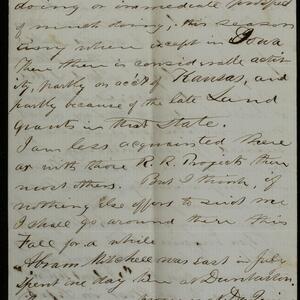 doing or immediate prospect
of much doing, this season
any where except in Iowa
There there is considerable activ
ity, partly on acc't of Kansas, and
partly because of the late Land
grants in that State.
I am less acquainted there
as with those R. R. Projects than
most others. But I think, if
nothing else offers to suit me
I shall go around there this
Fall for a while.
Hiram Mitchell was East in July
spent one day here at Dunkirk